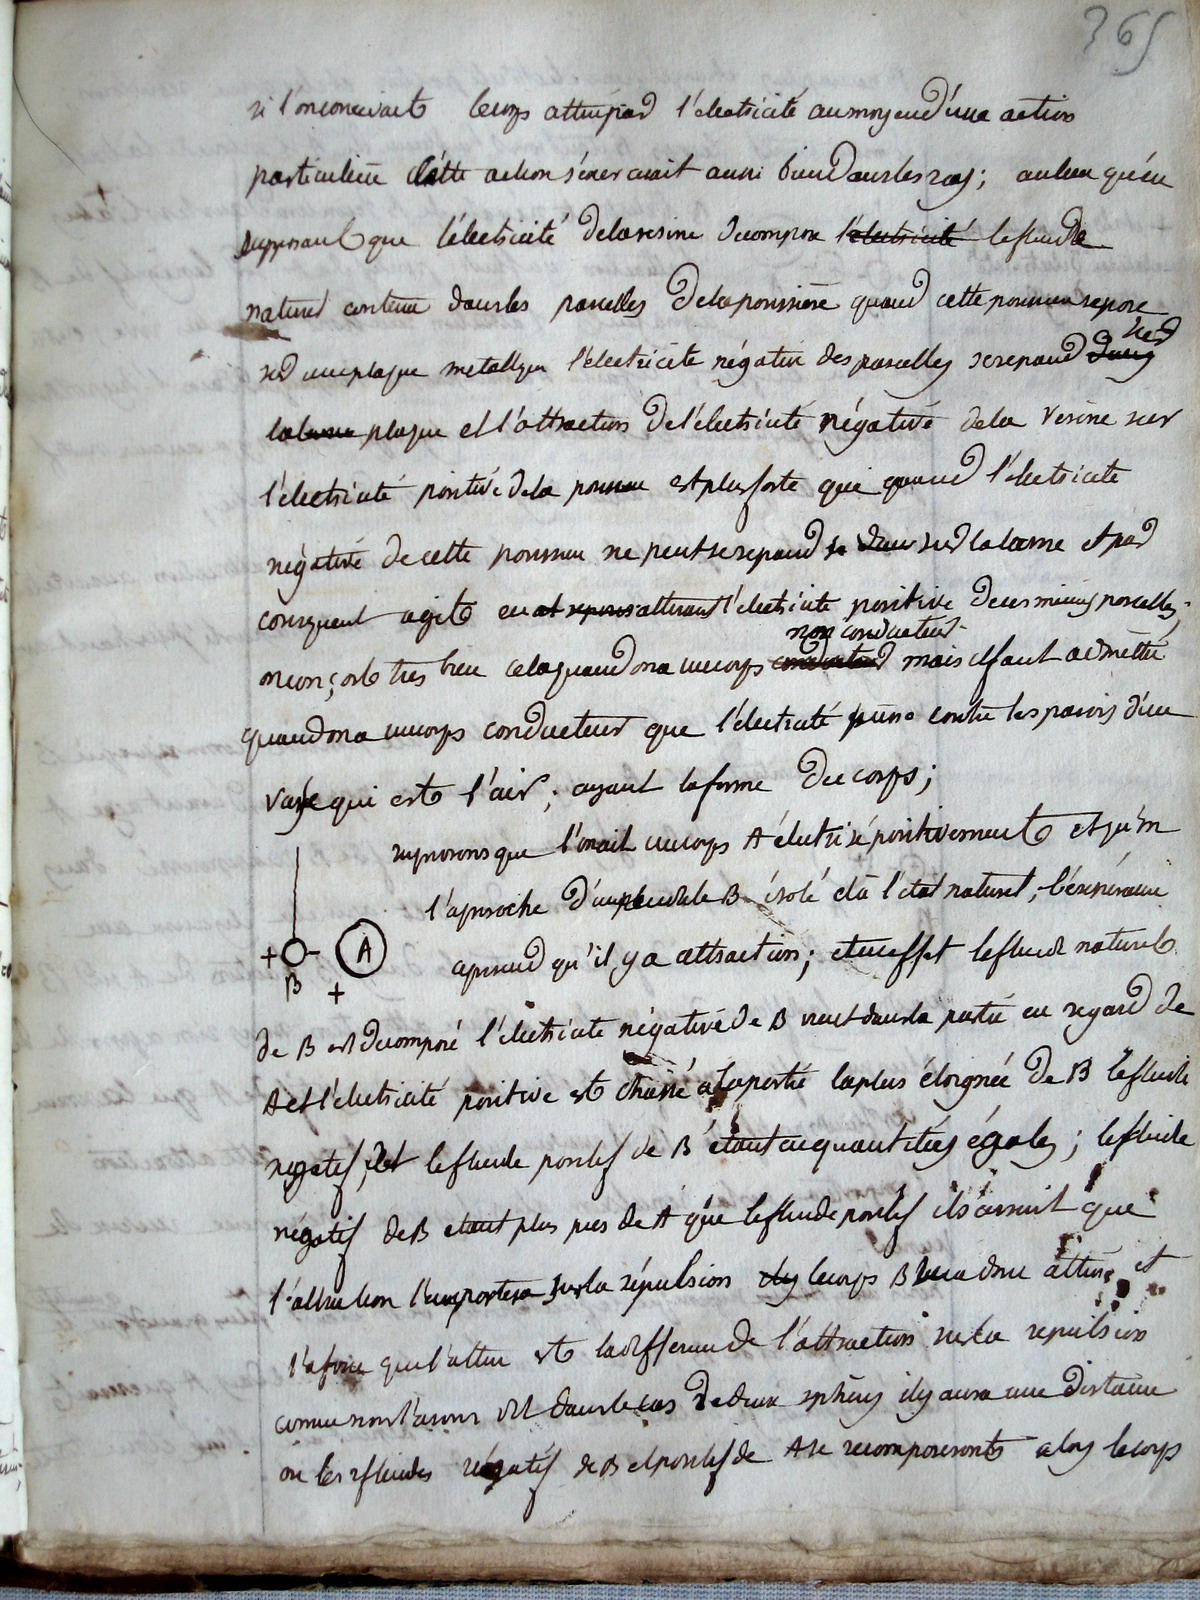 365
si l'onconcevait lecorps attirépar l'électricité aumoyend'une action
particulière cette action s'exercerait aussi biendanslescas; aulieu qu'en
supposant que l'électricité delaresine décompose l'électricité lefluide
naturel contenu dansles parcelles delapoussière quand cette poussiere repose
sur uneplaque metallique l'électricité négative des parcelles serepand dans sur
lalame plaque et l'attraction de l'électricité négative dela résine sur
l'électricité positive dela poussiere estplusforte que quand l'électricité
négative de cette poussiere ne peutserepand sur lalame et par
conséquent agit en attirant l'électricité positive decesmêmes parcelles;
onconçoit très bien celaquandona uncorps conducteur mais ilfaut admettre
non conducteur
quandona uncorps conducteur que l'électricité contre lesparois d'un
vase qui est l'air; ayant laforme du corps;
supposonsque l'onait uncorps A électrisépositivement et qu'on
l'approche d'unpendule B isolé età l'état naturel; l'expérience
apprend qu'il ya attraction; eteneffet lefluide naturel
+ - A
B +
de B estdécomposé l'électricité négative de B vient dansla partie en regard de
A et l'électricité positive est chassé àlapartie laplus éloignée de B lefluide
négatif et lefluide positif de B étantenquantités égales; lefluide
négatif deB etant plus près de A que lefluidepositif ils'ensuit que
l'attraction l'emportera surla répulsion lecorps B sera donc attiré et
laforce quil'attire est ladifference de l'attraction surla repulsion
comme nousl'avons dansle cas dedeux sphères ilyaura une distance
où les 2fluides négatif de B etpositifde A se recomposeront alors lecorps